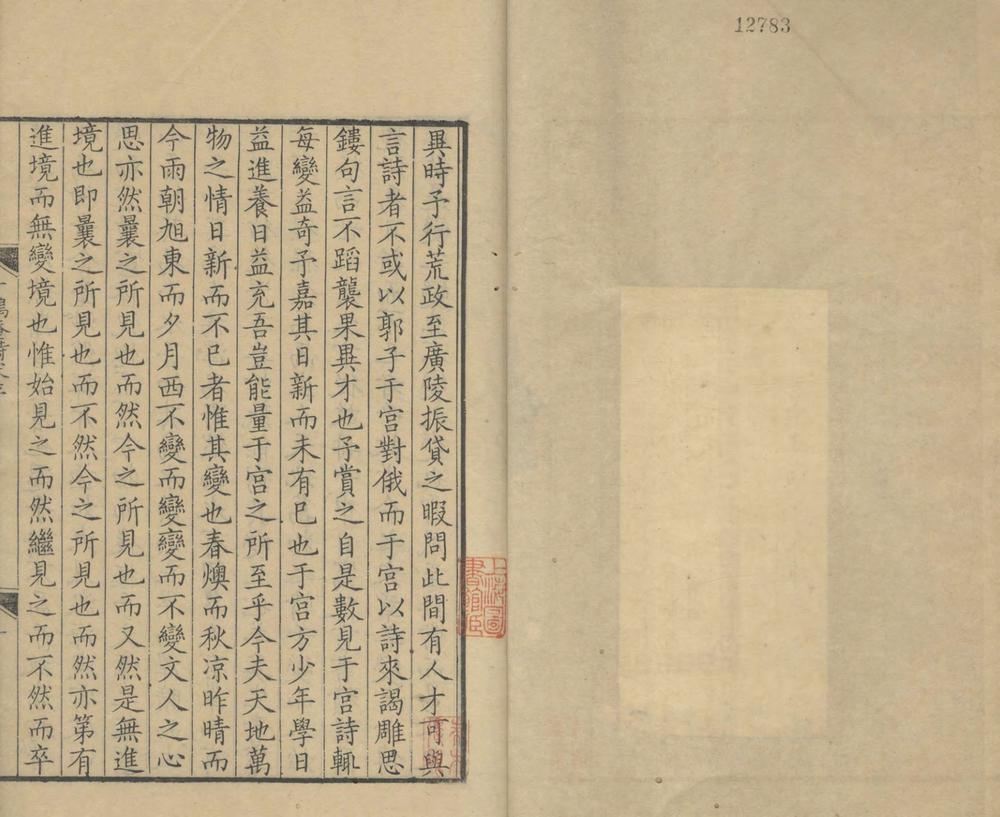 12783
異時予行荒政至廣陵振貸之暇問此間有人才可與
言詩者不或以郭子于宫對俄而于宫以詩來謁雕思
鏤句言不蹈襲果異才也予賞之自是數見于宫詩輙
每變益奇予嘉其日新而未有已也于宫方少年學日
益進養日益充吾豈能量于宫之所至乎今夫天地萬
物之情日新而不已者惟其變也春燠而秋凉昨晴而
今雨朝旭東而夕月西不變而變變而不變文人之心
思亦然曩之所見也而然今之所見也而又然是無進
境也即曩之所見也而不然今之所見也而然亦第有
進境而無變境也惟始見之而然繼見之而不然而卒
上海圖書館藏